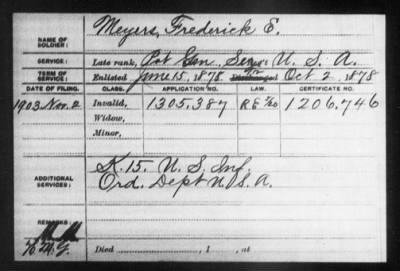 NAME OF SOLDIER: Meyers, Frederick E.
SERVICE: Late rank, Pvt Gen. Serv. U. S. A.
TERM OF SERVICE: Enlisted June 15, 1878 Discharged to Oct 2, 1878
DATE OF FILING. CLASS. APPLICATION NO. LAW. CERTIFICATE NO.
1903 Nov. 2 Invalid, 1305,387 1206,746
Widow,
Minor,
ADDITIONAL SERVICES: K. 15. U. S. Inf.
Ord. Dept U. S. A.
REMARKS:
Died , 1 , at